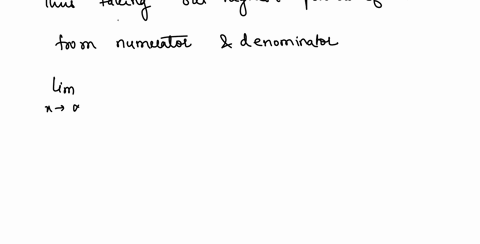 Thus taking out highest power of
from numerator & denominator
lim
x → α